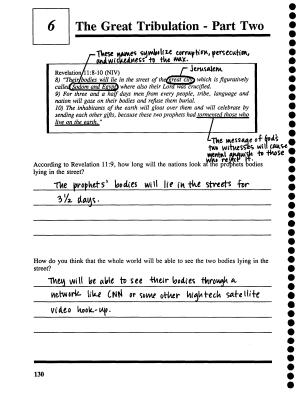 6
The Great Tribulation - Part Two
These names symbolize corruption, persecution,
and wickedness to the max.
Jerusalem
Revelation 11:8-10 (NIV)
8) "Their bodies will lie in the street of the great city, which is figuratively
called Sodom and Egypt, where also their Lord was crucified.
9) For three and a half days men from every people, tribe, language and
nation will gaze on their bodies and refuse them burial.
10) The inhabitants of the earth will gloat over them and will celebrate by
sending each other gifts, because these two prophets had tormented those
who live on the earth."
The message of God's
two witnesses will cause
mental anguish to those
who reject it.
According to Revelation 11:9, how long will the nations look at the prophets bodies
lying in the street?
The prophets' bodies will lie in the streets for
3½ days.
How do you think that the whole world will be able to see the two bodies lying in the
street?
They will be able to see their bodies through a
network like CNN or some other hightech satellite
video hook-up.
130